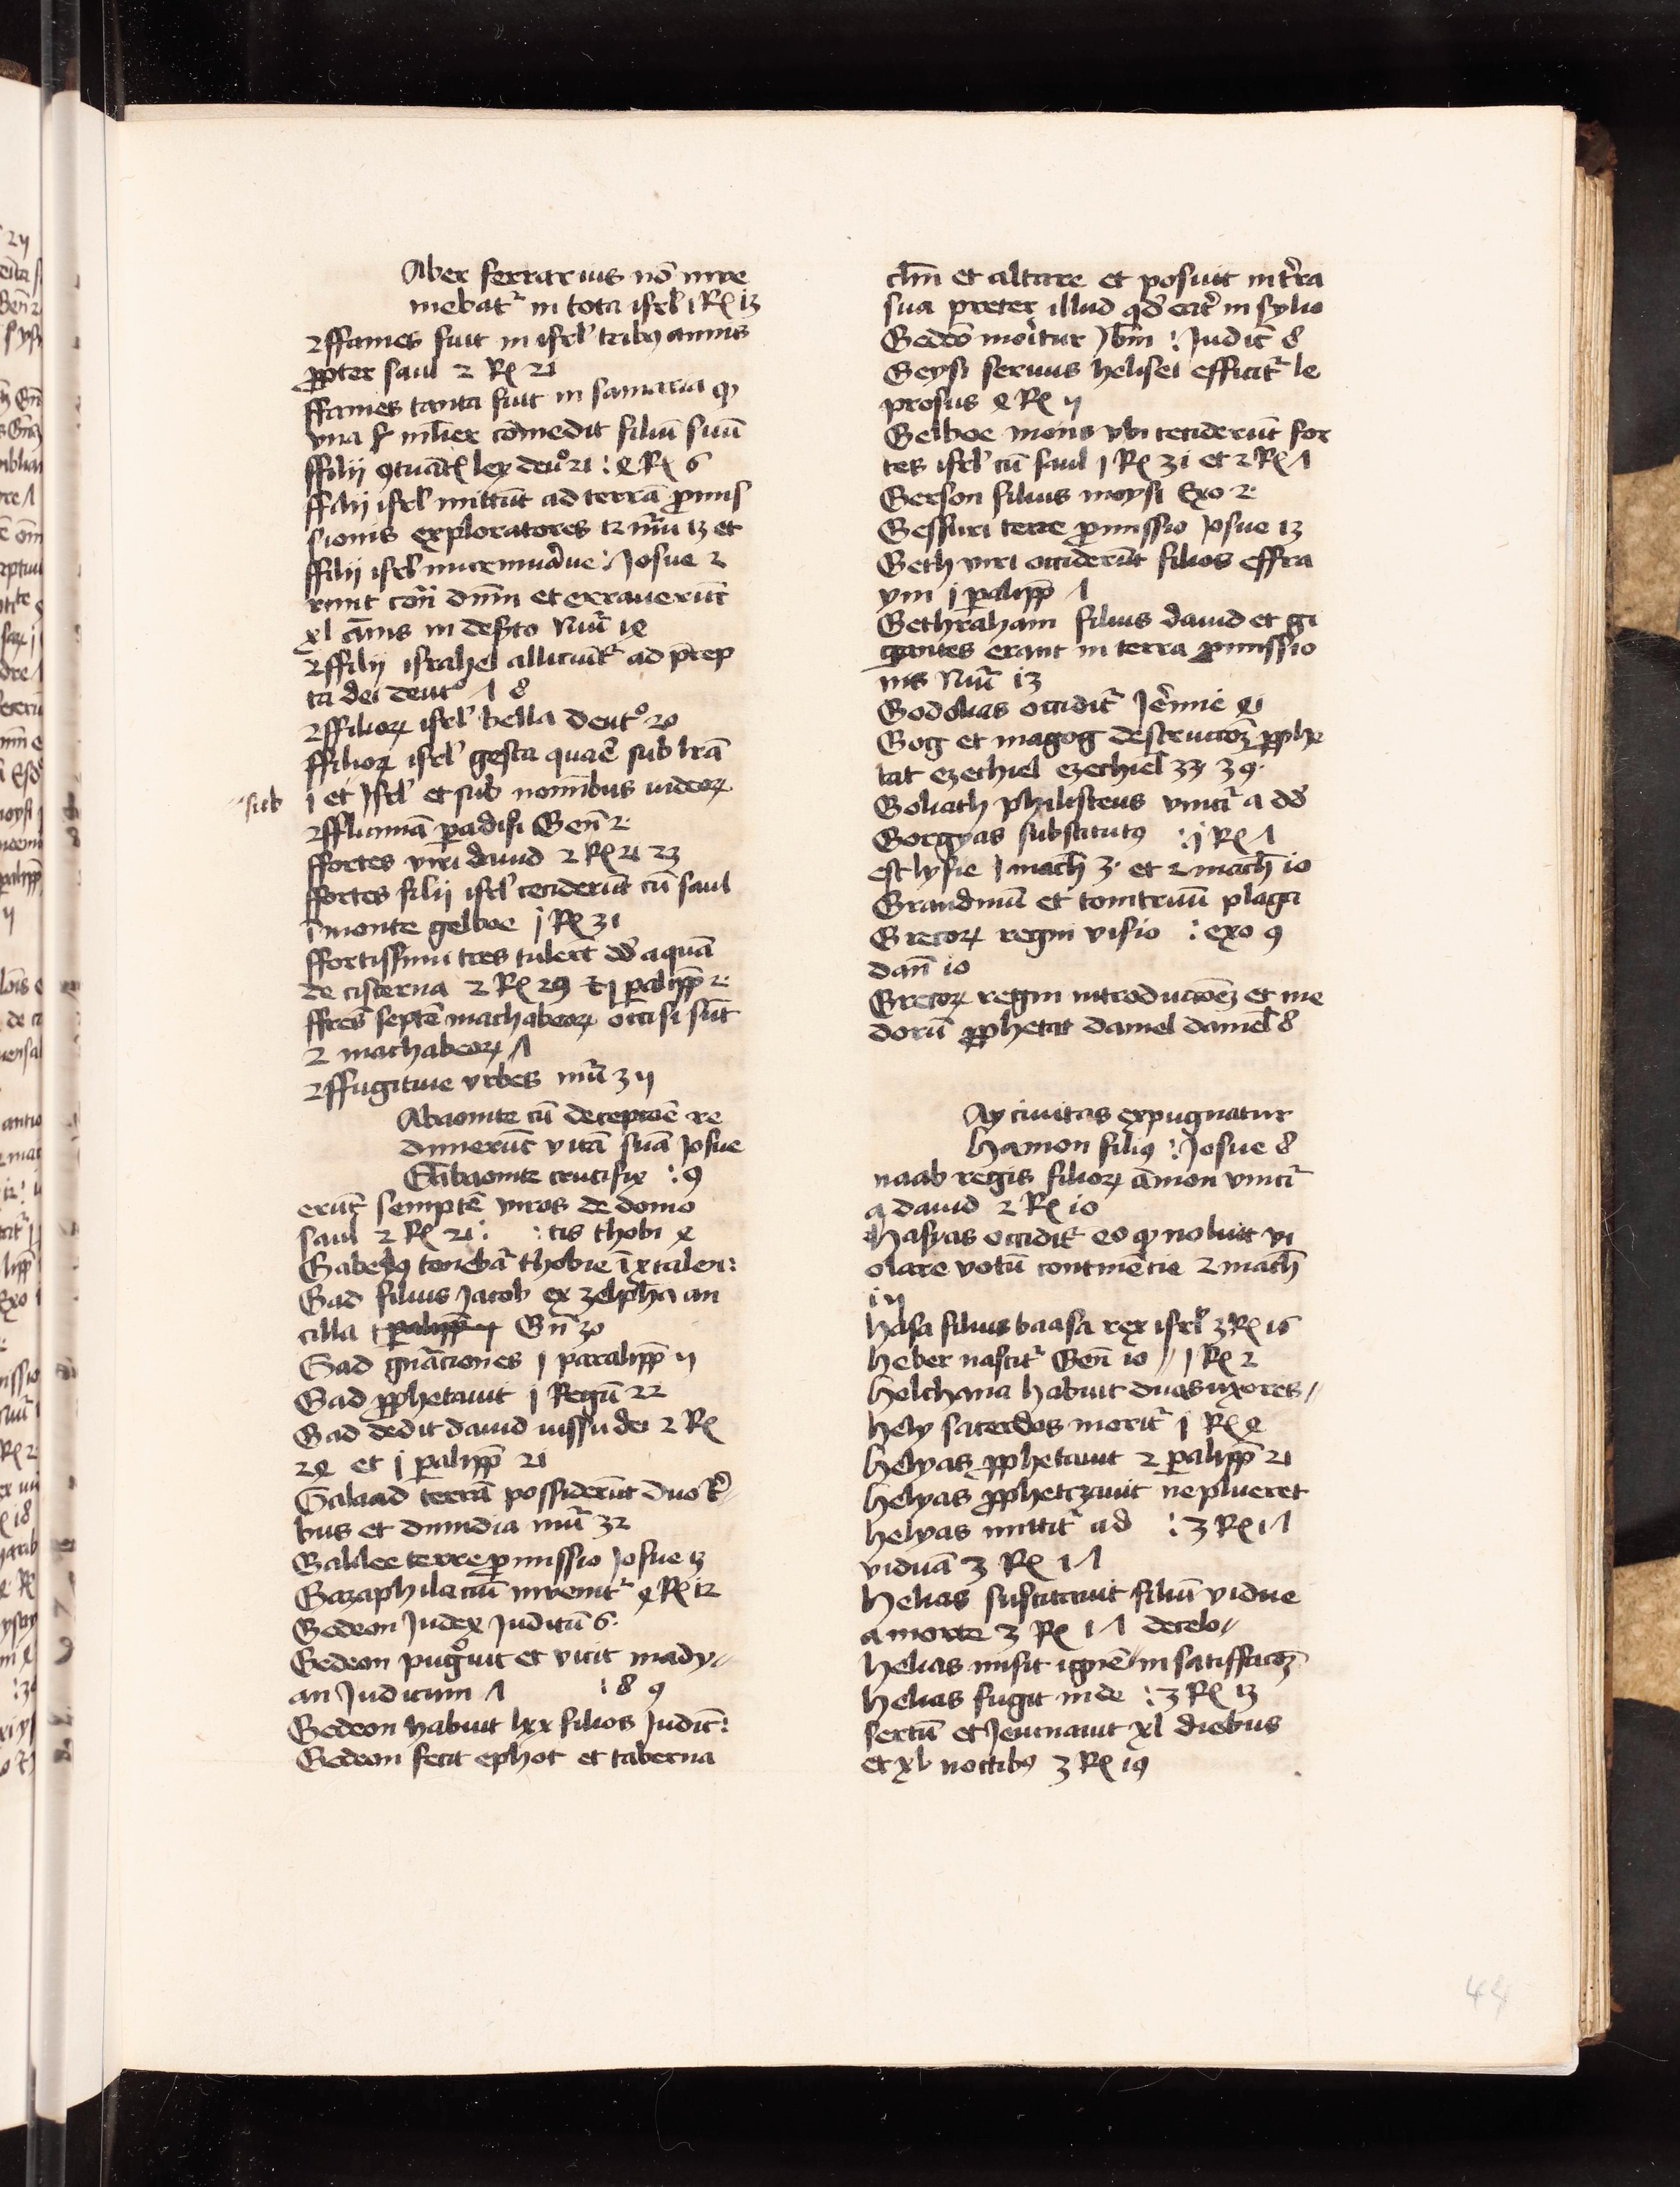 Aber ferrarius nō inve
niebat᷑ in tota isrl̕ i Rꝭ 13
ffames fuit in isrl̕ tribꝯ annis
ꝓpter saul 2 Rꝭ 21
ffames tanta fuit in samaria qꝫ
vna mĺier comedit filiū suū
ffilij lex deuᵒ 21 : 4 Rꝭ 6
ffilij isrl̕ mittūt ad terrā ꝓmis
sionis exploratores 12 nūu 13 et
ffilij isrl̕ murmua̕ue : Josue 2
runt cōn̄ dn̄m et erraverūt
xl ān̄is in deẜto Nūu 14
ffilij israhel alliciūt᷑ ad p̄cep
ta dei deutᵒ 7 8
ffilioꝝ isrl̕ bella deutᵒ 20
ffilioꝝ isrl̕ gesta quae̕ sub lr̄a
sub
i et Isrl̕ et sub nominībus iudeoꝝ
fflumina ꝑadisi Gen̄ 2
ffortes viri dauid 2 Rꝭ 21 23
ffortes filij isrl̕ ceciderūt cū saul
ī monte gelboe j Rꝭ 31
ffortissimi tres tulerūt dd̕ aquā
de cisterna 2 Rꝭ 23 et j ꝑalipp̄
ffres septē machabeoꝝ occisi sūt
2 machabeoꝝ 7
ffugitiue vrbes nūu 35
Abaonite cū decepcōe̅ re
dimerūt vitā suā Josue
Gabaonite crucifix : 9
erūt septē viros de domo
saul 2 Rꝭ 21 : : tis thobi 4
Gabelꝯ teneba᷑ thobie ī x talen :
Gad filius Jacob ex zelpha an
cilla Gn̄ 30
Gad gn̄aciones j paralipp̄ 5
Gad ꝓphetauit j Regū 22
Gad dedit dauid iussu dei 2 Rꝭ
24 et j ꝑalipp̄ 21
Galaad terrā possiderūt duo tr̕
bus et dimidia nūu 32
Galilee terre ꝓmissio Josue 13
Gazaphilaciū invenit᷑ 4 Rꝭ 12
Gedeon Judex Judicū 6
Gedeon pugᵒuit et vicit mady
an Judicum 7 : 8 9
Gedeon habuit lxx filios Judic̄ :
Gedeon fecit ephot et taberna
cl̄m et altare et posuit in tr̕ra
sua preter illud qd̕ erat̕ in sylo
Gedeō mori᷑tur Jbm̄ : Judic̄ 8
Geysi seruus helisei efficit᷑ le
prosus 4 Rꝭ 5
Gelboe mons vbi ceciderūt for
tes isrl̕ cū saul j Rꝭ 31 et 2 Rꝭ 1
Gerson filius moysi Exo 2
Gessuri terre ꝓmissio Josue 13
Geth viri occiderūt filios effra
ym j ꝑalipp̄ 7
Gethraham filius dauid et gi
gantes erant in terra ꝓmissio
nis Nūu 13
Godolias occidit᷑ Jer̕mie 41
Gog et magog destruccōeꝫ ꝓphe
tat ezechiel ezechiel̄ 38 39
Goliath philisteus vincit᷑ a dd̕
Gorgyas substitutꝯ : j Rꝭ 17
est lysie j mach̄ 3 et 2 mach̄ 10
Grandinū et tonitruū plaga
Grecoꝝ regni visio : exo 9
dan̄ 10
Grecoꝝ regni introduccōeꝫ et me
dorū ꝓphetat daniel daniel̄ 8
Ay ciuitas expugnatur
Hamon filiꝯ : Josue 8
naab regis filioꝝ āmon vincit᷑
a dauid 2 Rꝭ 10
Hasyas occidit᷑ eo qꝫ noluit vi
olare votū continēcie 2 mach̄
14
Hasa filius baasa rex isrl̕ 3 Rꝭ 16
Heber nascit᷑ Gen̄ 10 // j Rꝭ 2
Helchana habuit duas uxores //
Hely sacerdos morit᷑ j Rꝭ 4
Helyas ꝓphetauit 2 ꝑalipp̄ 21
Helyas ꝓphetzauit ne plueret
Helyas mittit᷑ ad : 3 Rꝭ 17
viduā 3 Rꝭ 17
Helias suscitauit filiū vidue
a morte 3 Rꝭ 17 decelo //
Helias misit ignē // in satiffacōꝫ
Helias fugit in de : 3 Rꝭ 13
sertū et Jeiunauit xl diebus
et xl noctibꝯ 3 Rꝭ 19
44